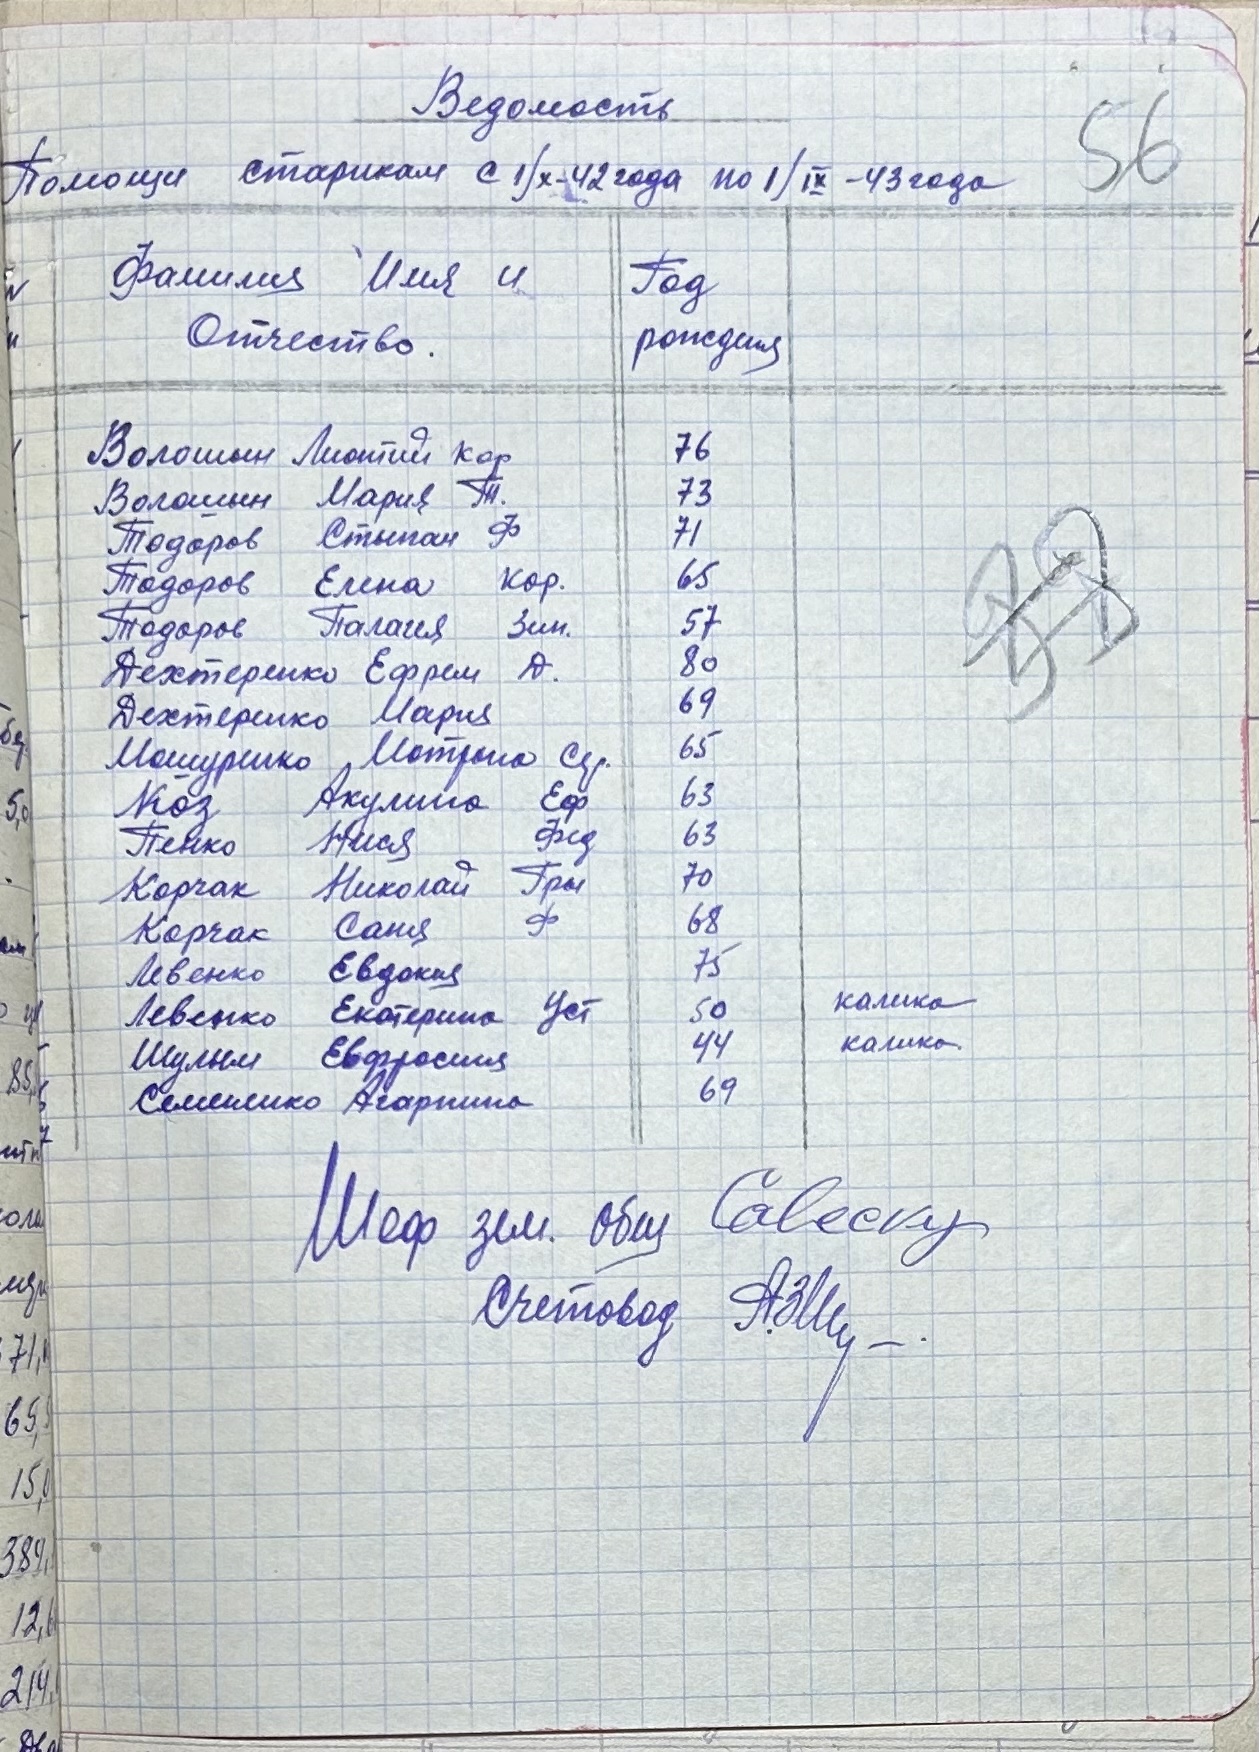 56
Ведомость
Помощи старикам с 1/X-42 года по 1/IX-43 года
Фамилия Имя и Год
Отчество. рождения
Волошын Лионтий Кор 76
Волошын Мария Т. 73
Тодоров Стыпан Ф 71
Тодоров Елена Кор. 65
Тодоров Палагия Зин. 57
Дехтеренко Ефрем Д. 80
Дехтеренко Мария 69
Мошуренко Мотрона 65
Коз Акулина Еф 63
Пенко Нися Фед 63
Корчак Николай Гры 70
Корчак Саня Ф 68
Левенко Евдокия 75
Левенко Екатерина Уст 50 калика
Шулым Евфросиния 44 калика.
Семененко Агарпина 69
Шеф зем. общ Савеску
Счетовод
71,
65,
15,0
384,
12,6
214,